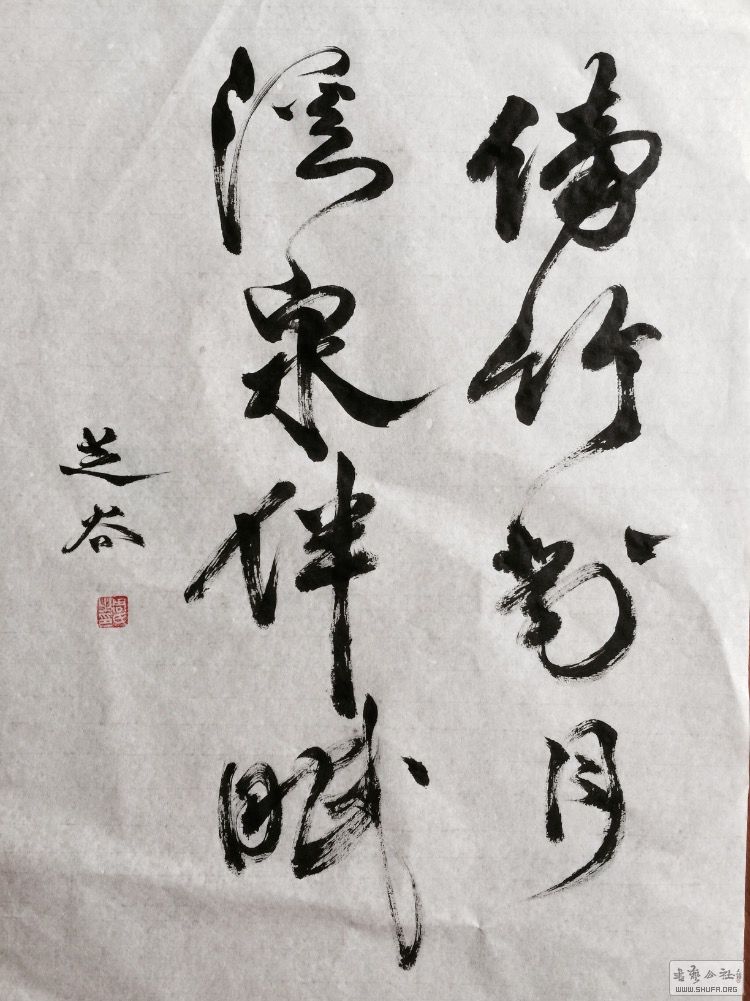 傍竹對月
溪泉伴
芝谷
书艺公社
WWW.SHUFA.ORG